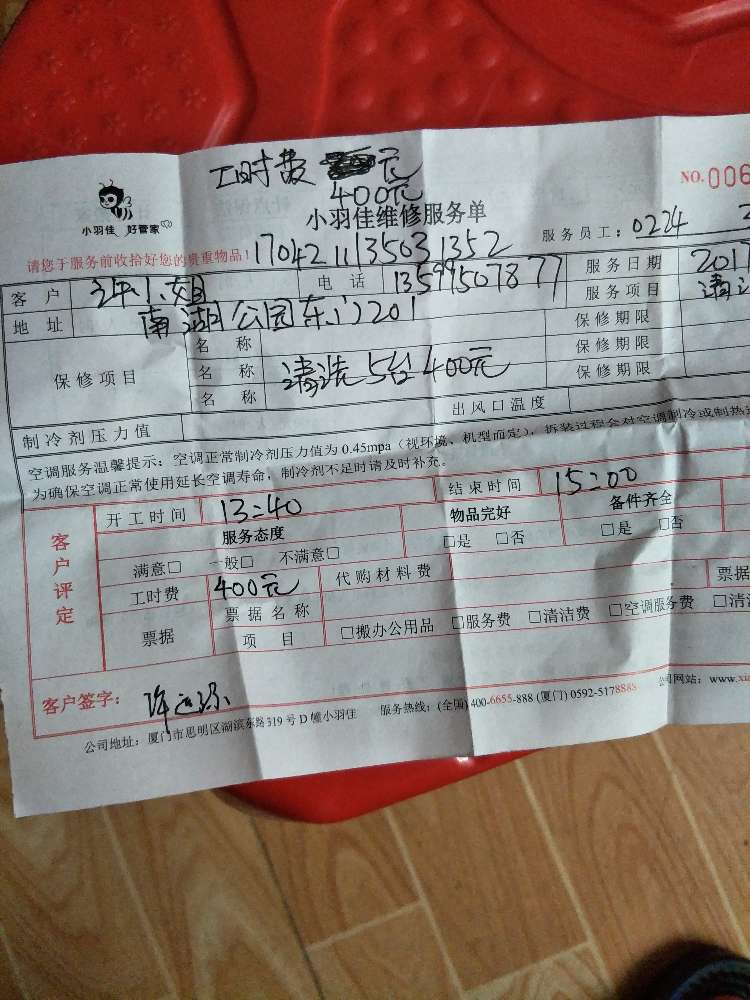 工时费 元
400元
NO.006
小羽佳 好管家
小羽佳维修服务单
请您于服务前收拾好您的贵重物品! 17042113503 1352 服务员工: 0224
客户 小姐 电话 13599507877 服务日期 2017
地址 南湖公园东门201 服务项目 清
保修项目 名称 保修期限
名称 清洗5台400元 保修期限
名称 保修期限
制冷剂压力值 出风口温度
空调服务温馨提示:空调正常制冷剂压力值为0.45mpa(视环境、机型而定),拆装过程会对空调制冷或制热
为确保空调正常使用延长空调寿命,制冷剂不足时请及时补充。
客户评定 开工时间 13:40 结束时间 15:00
服务态度 物品完好 备件齐全
满意□ 一般□ 不满意□ □是 □否 □是 □否
工时费 400元 代购材料费
票据 票据名称 票据
项目 □搬办公用品 □服务费 □清洁费 □空调服务费 □清
客户签字: 许
公司地址:厦门市思明区湖滨东路319号D幢小羽佳 服务热线:(全国)400-6655-888 (厦门) 0592-5178888 公司网站: www.xia